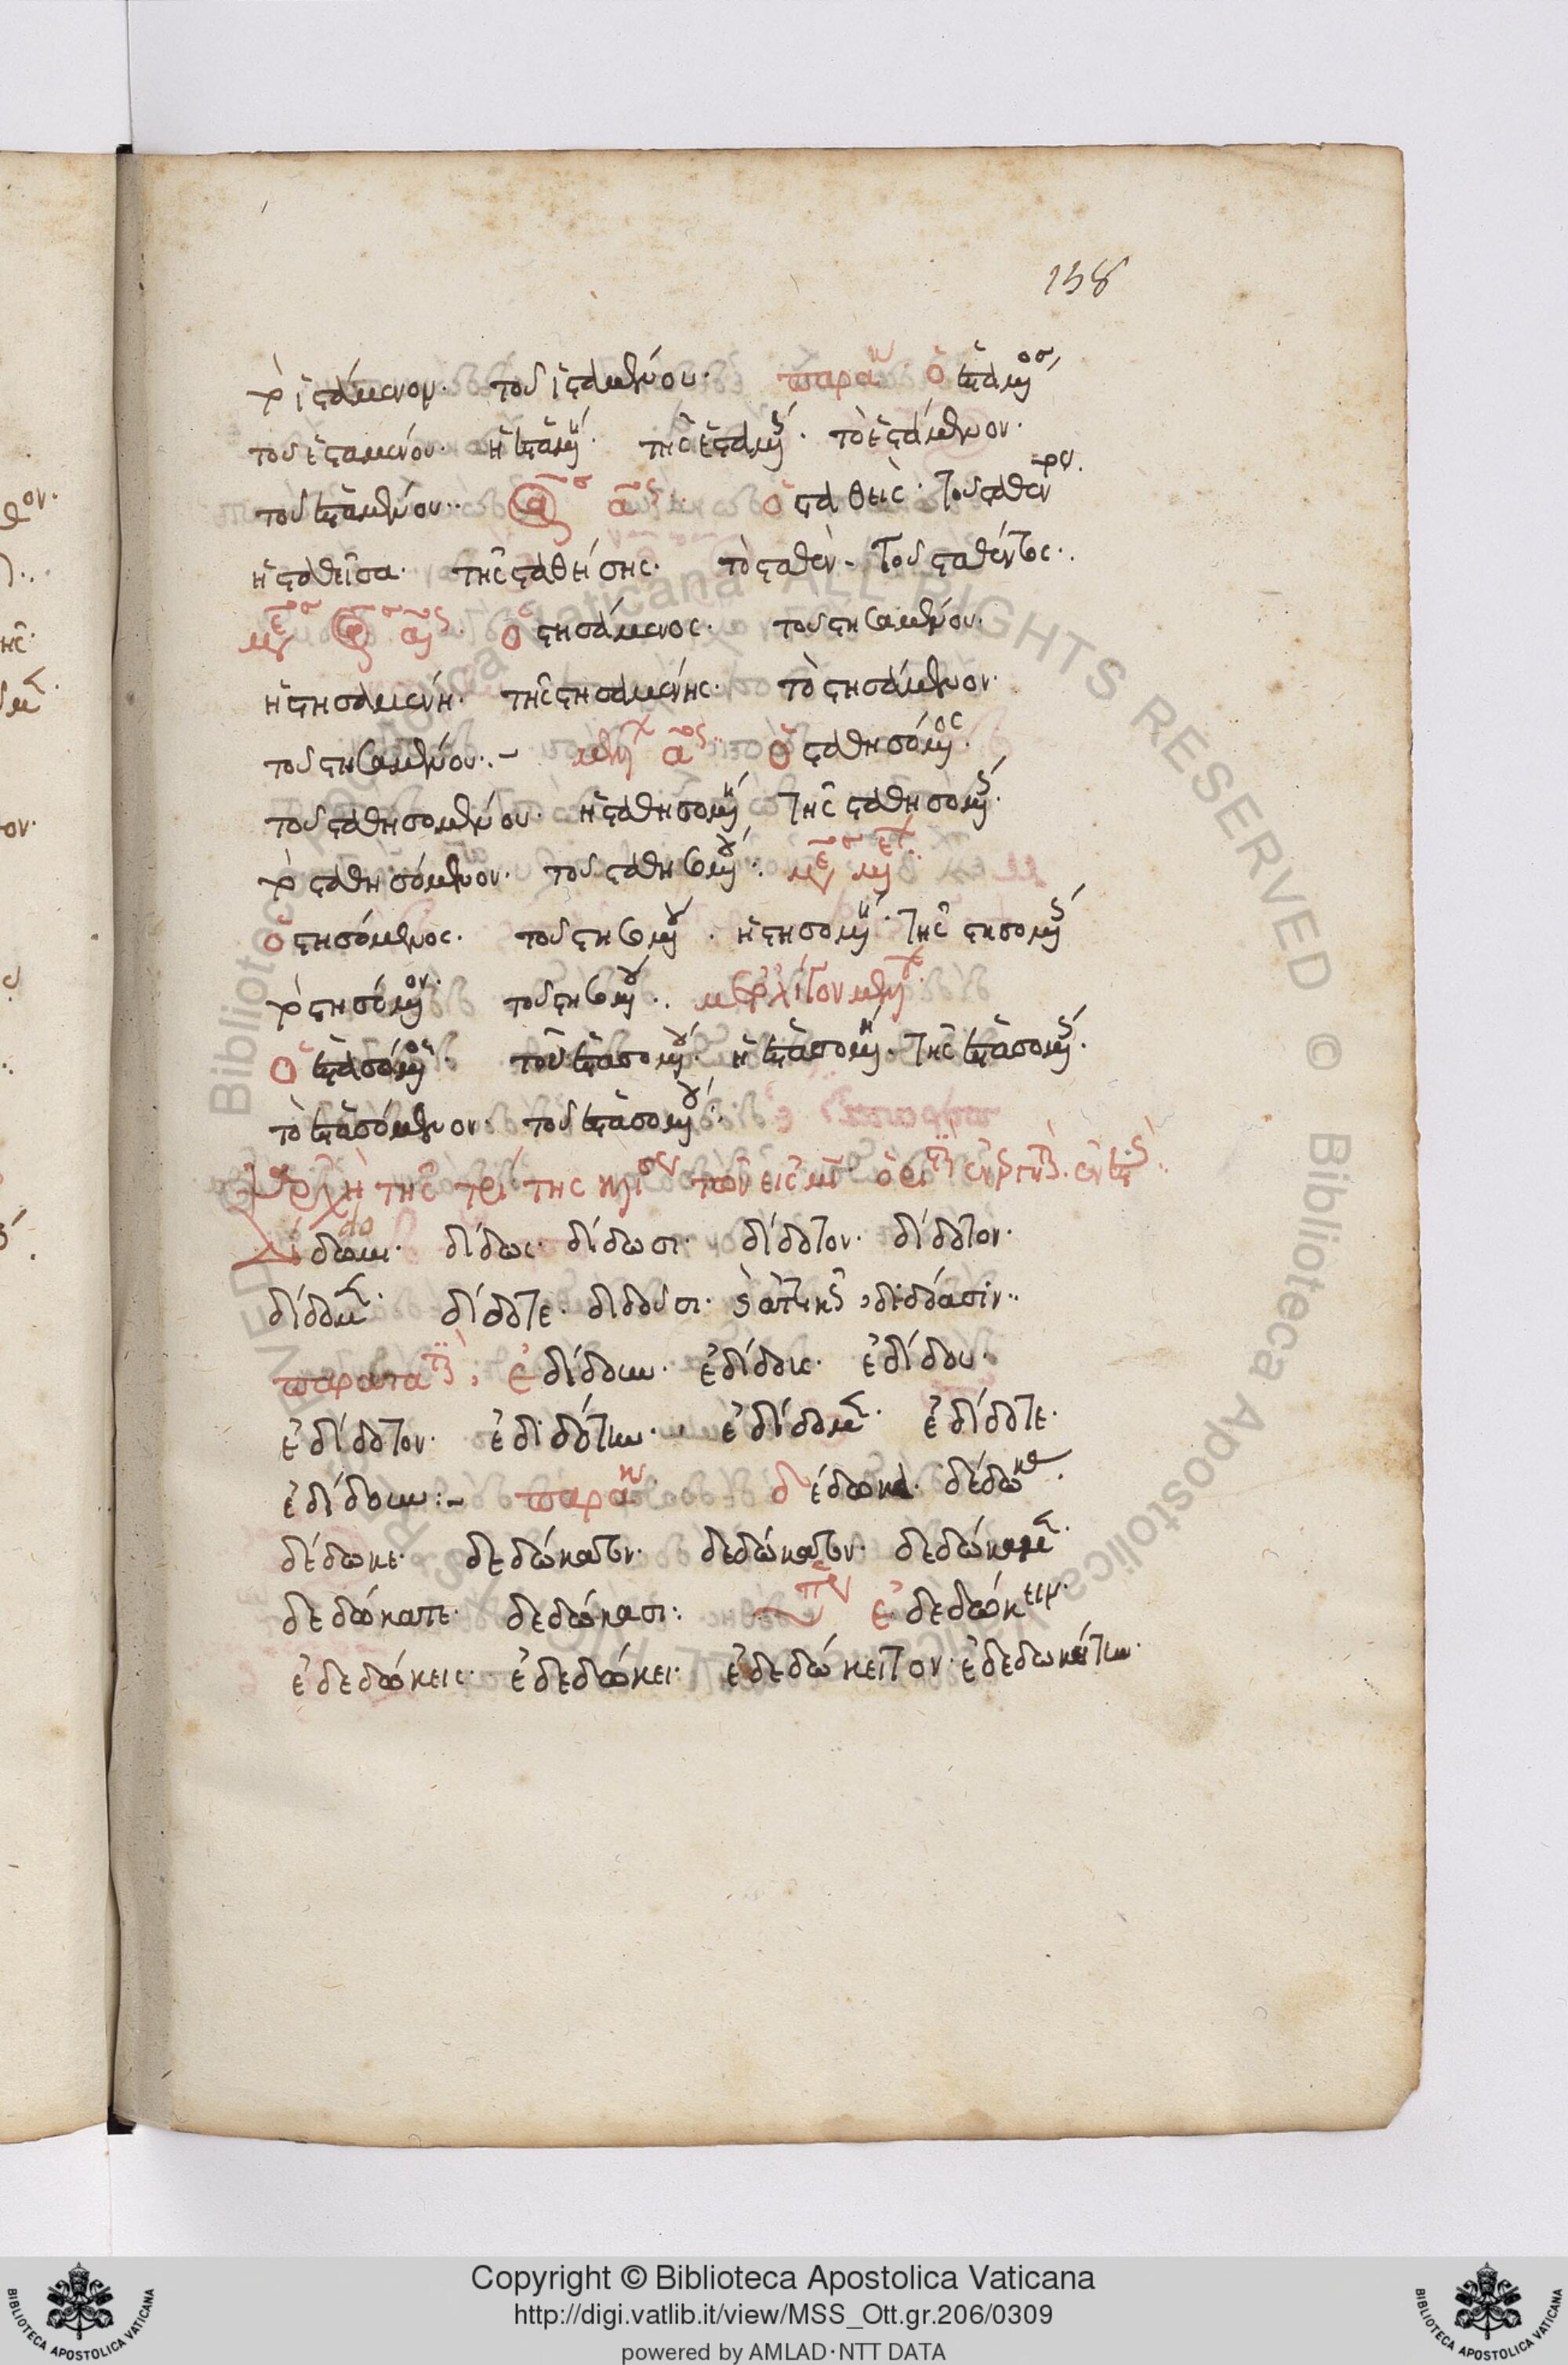 158
τὸ ἱστάμενον. τοῦ ἱσταμένου. παρακ ὁ ἑσταμος
τοῦ ἑσταμένου. ἡ ἑσταμη. τῆς ἑσταμης. τὸ ἑστάμενον.
τοῦ ἑσταμένου. ὁ σταθεὶς. τοῦ σταθεντος.
ἡ σταθεῖσα. τῆς σταθείσης. τὸ σταθὲν. τοῦ σταθέντος.
ὁ στησάμενος. τοῦ στησαμένου.
ἡ στησαμενή. τῆς στησαμενής. τὸ στησάμενον.
τοῦ στησαμένου. ὁ σταθησόμος.
τοῦ σταθησομένου. ἡ σταθησομη. τῆς σταθησομης.
τὸ σταθησόμενον. τοῦ σταθησομου.
ὁ στησόμενος. τοῦ στησομου. ἡ στησομη. τῆς στησομης
τὸ στησόμον. τοῦ στησομου. μετ' ὀλίγον μελ
ὁ ἑστασόμος. τοῦ ἑστασομου. ἡ ἑστασομη. τῆς ἑστασομης.
τὸ ἑστασόμενον. τοῦ ἑστασομου.
Ἀρχὴ τῆς τρίτης τῶν εἰς μι
do
Δίδωμι. δίδως. δίδωσι. δίδοτον. δίδοτον.
δίδομεν. δίδοτε. διδοῦσι. διδόασιν.
παρατα ἐδίδουν. ἐδίδους. ἐδίδου.
ἐδίδοτον. ἐδιδότην. ἐδίδομεν. ἐδίδοτε.
ἐδίδουν. παρακ δέδωκα. δέδωκας.
δέδωκε. δεδώκατον. δεδώκατον. δεδώκαμεν.
δεδώκατε. δεδώκασι. ἐδεδώκειν.
ἐδεδώκεις. ἐδεδώκει. ἐδεδώκειτον. ἐδεδωκείτην.
Copyright © Biblioteca Apostolica Vaticana
http://digi.vatlib.it/view/MSS_Ott.gr.206/0309
powered by AMLAD·NTT DATA